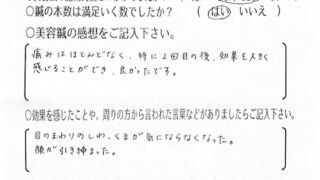 ○鍼の本数は満足いく数でしたか？ （ はい いいえ ）
○美容鍼の感想をご記入下さい。
痛みはほとんどなく、特に2回目の後、効果を大きく
感じることができ、良かったです。
○効果を感じたことや、周りの方から言われた言葉などがありましたらご記入下さい。
目のまわりのしわ、くまが気にならなくなった。
顔が引き締まった。